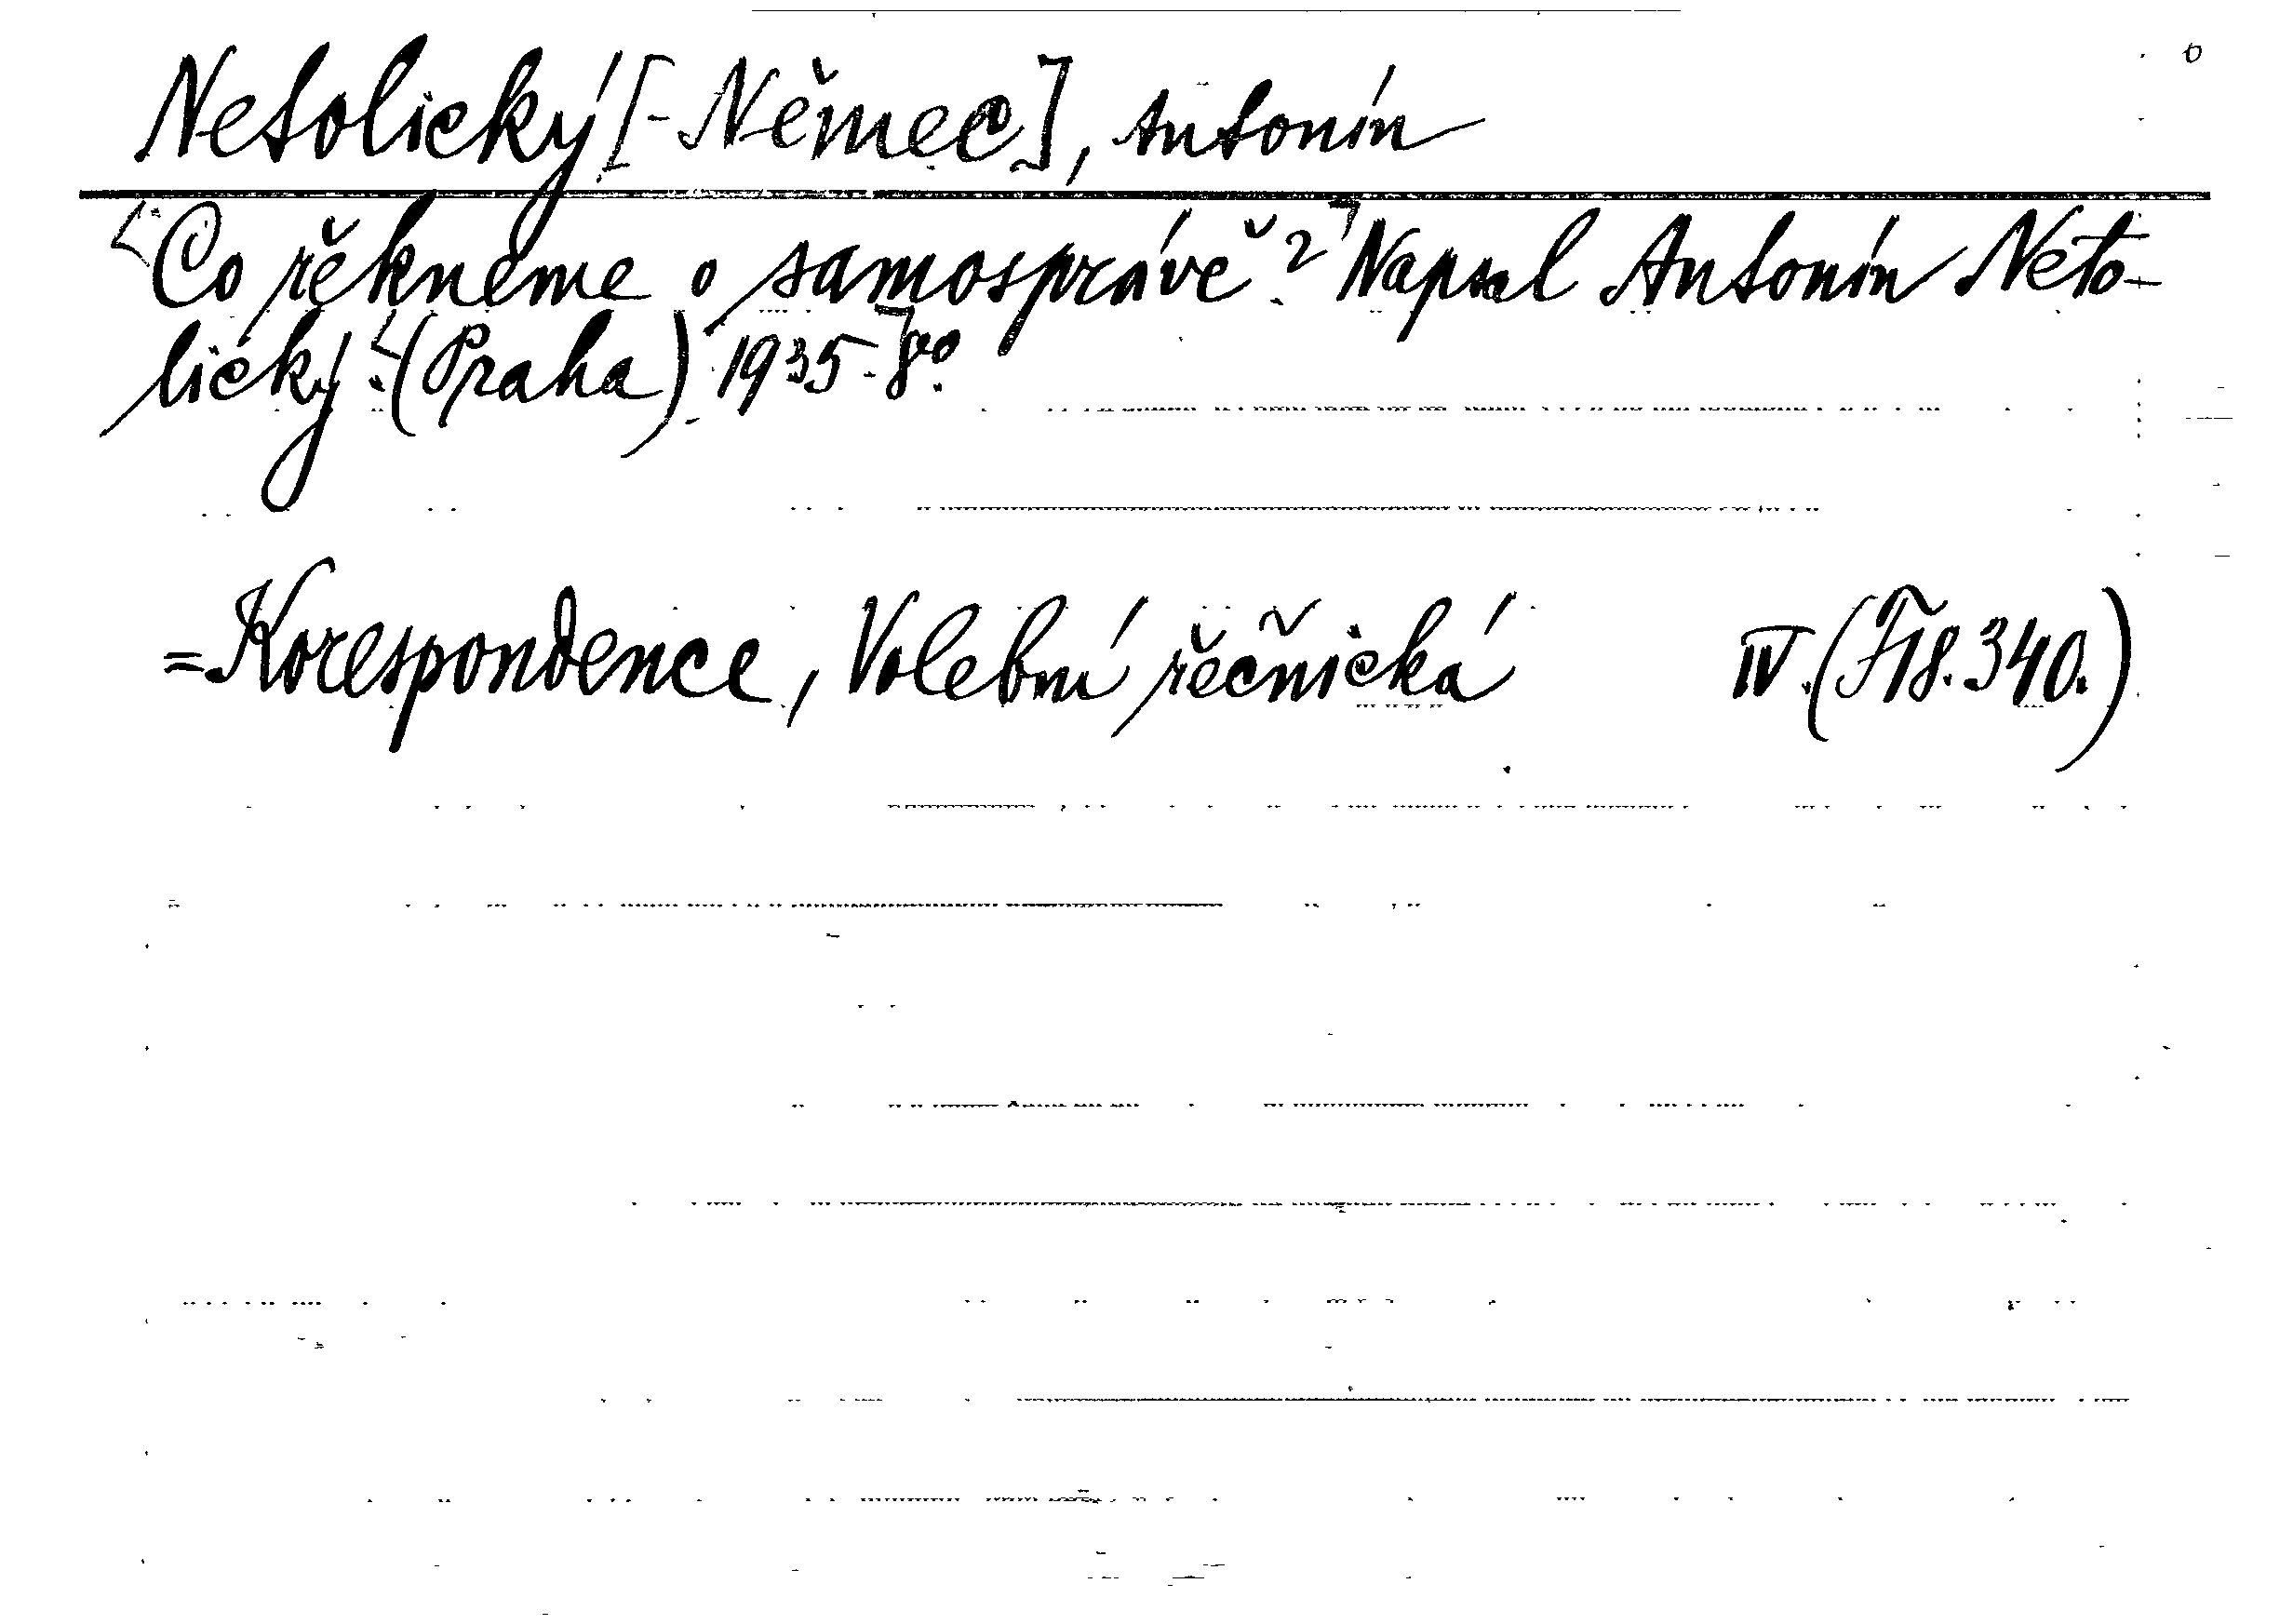 Netolický [-Němec], Antonín
Co řekneme o samosprávě? Napsal Antonín Neto-
lický. (Praha) 1935. 8º.
=Korespondence, Volební řečnická IV. (F 18.340.)